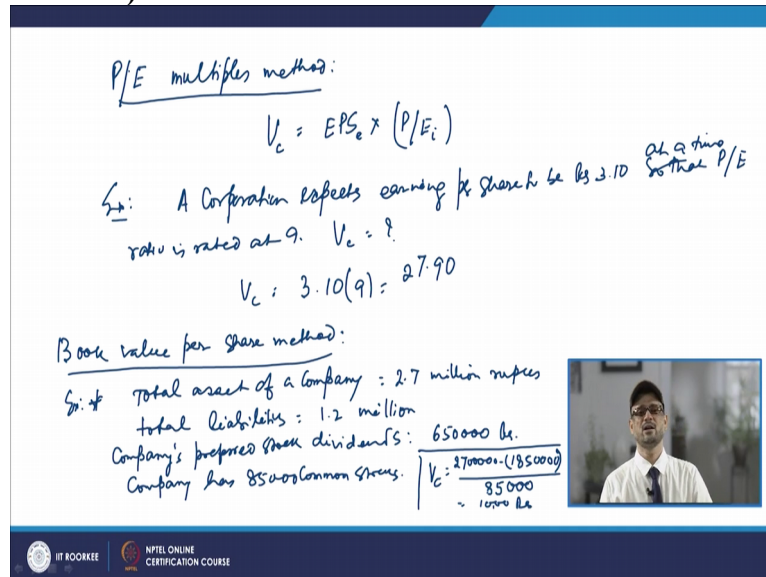 P/E multiples method:
V_c = EPS_e × (P/E_i)
Ex: A Corporation expects earning per share to be Rs 3.10 at a time so that P/E
ratio is rated at 9. V_c = ?
V_c = 3.10(9) = 27.90
Book value per share method:
Ex: * Total asset of a Company = 2.7 million rupees
total liabilities = 1.2 million
Company's preferred stock dividents: 650000 Rs.
Company has 85000 Common stocks.
V_c = 2700000-(1850000)
85000
= 10.00 Rs
IIT ROORKEE
NPTEL ONLINE
CERTIFICATION COURSE